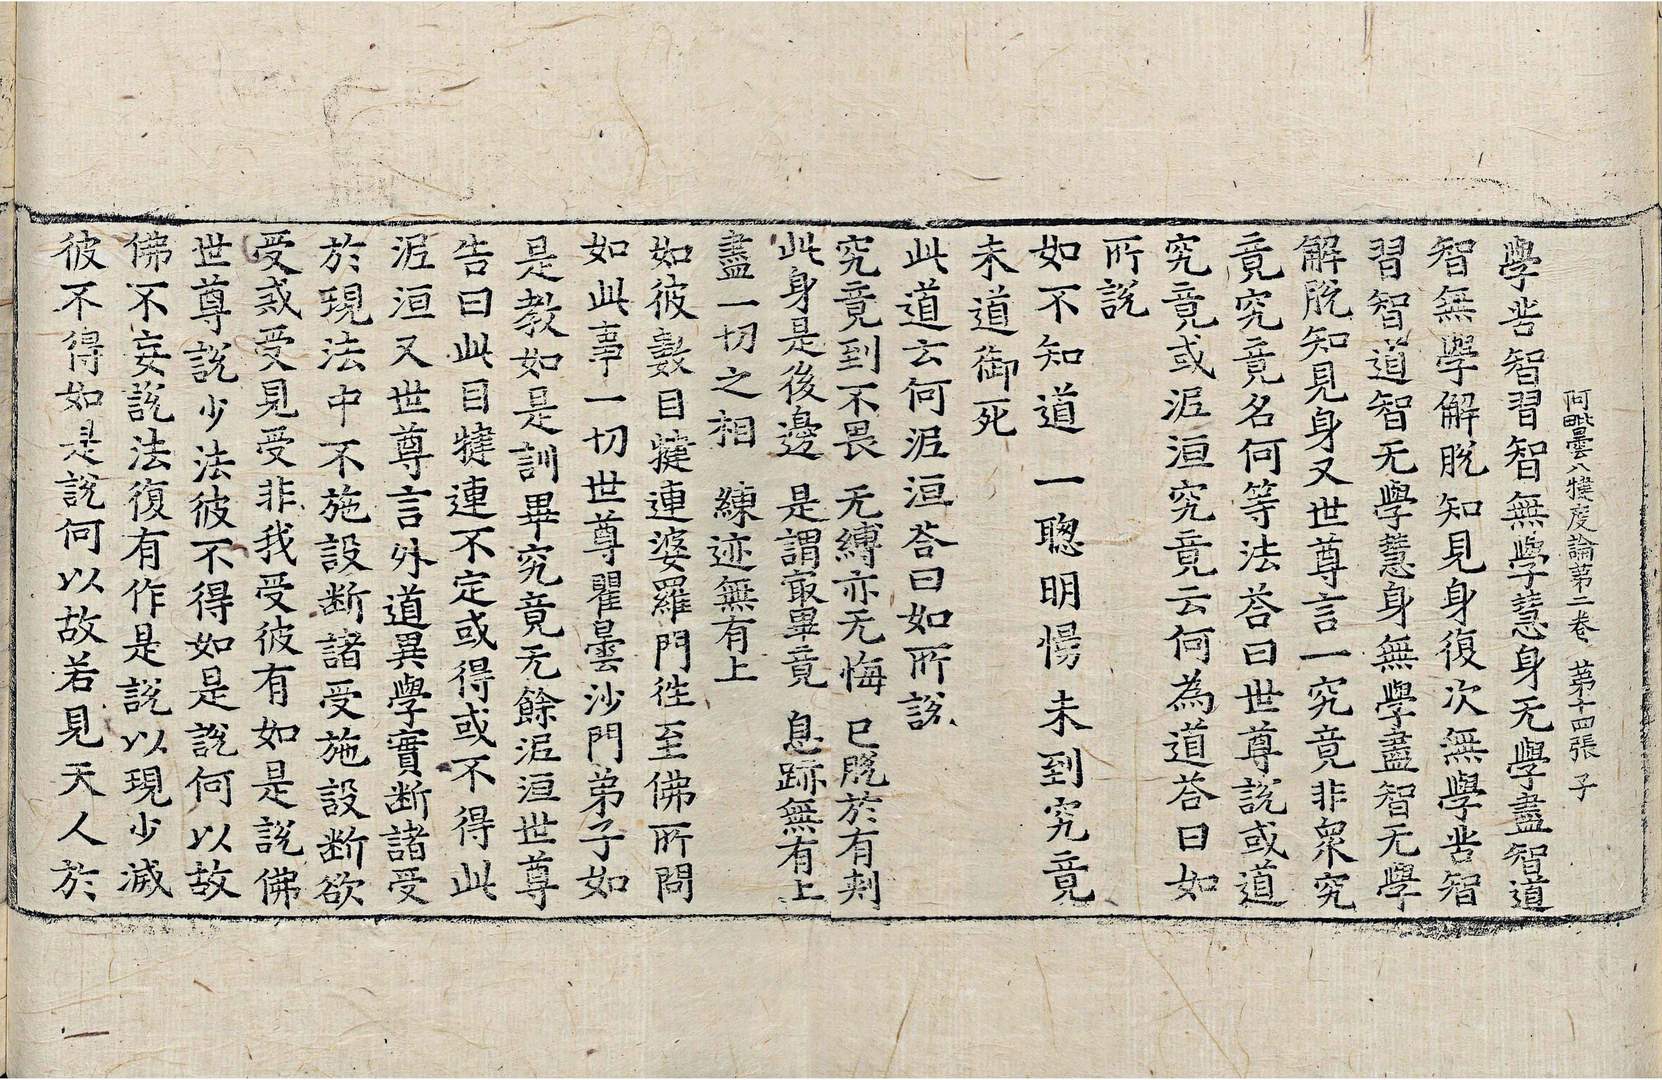 阿毗曇八揵度論第二卷 第十四張 子
學苦智習智無學慧身无學盡智道
智無學解脫知見身復次無學苦智
習智道智无學慧身無學盡智无學
解脫知見身又世尊言一究竟非衆究
竟究竟名何等法荅曰世尊說或道
究竟或泥洹究竟云何為道荅曰如
所說
如不知道 一聰明慢 未到究竟
未道御死
此道云何泥洹荅曰如所說
究竟到不畏 无縛亦无悔 已脫於有刺
此身是後邊 是謂㝡畢竟 息跡無有上
盡一切之相 練迹無有上
如彼數目揵連婆羅門徃至佛所問
如此事一切世尊瞿曇沙門弟子如
是教如是訓畢究竟无餘泥洹世尊
告曰此目揵連不定或得或不得此
泥洹又世尊言外道異學實断諸受
於現法中不施設断諸受施設断欲
受戒受見受非我受彼有如是說佛
世尊說少法彼不得如是說何以故
佛不妄說法復有作是說以現少滅
彼不得如是說何以故若見天人於